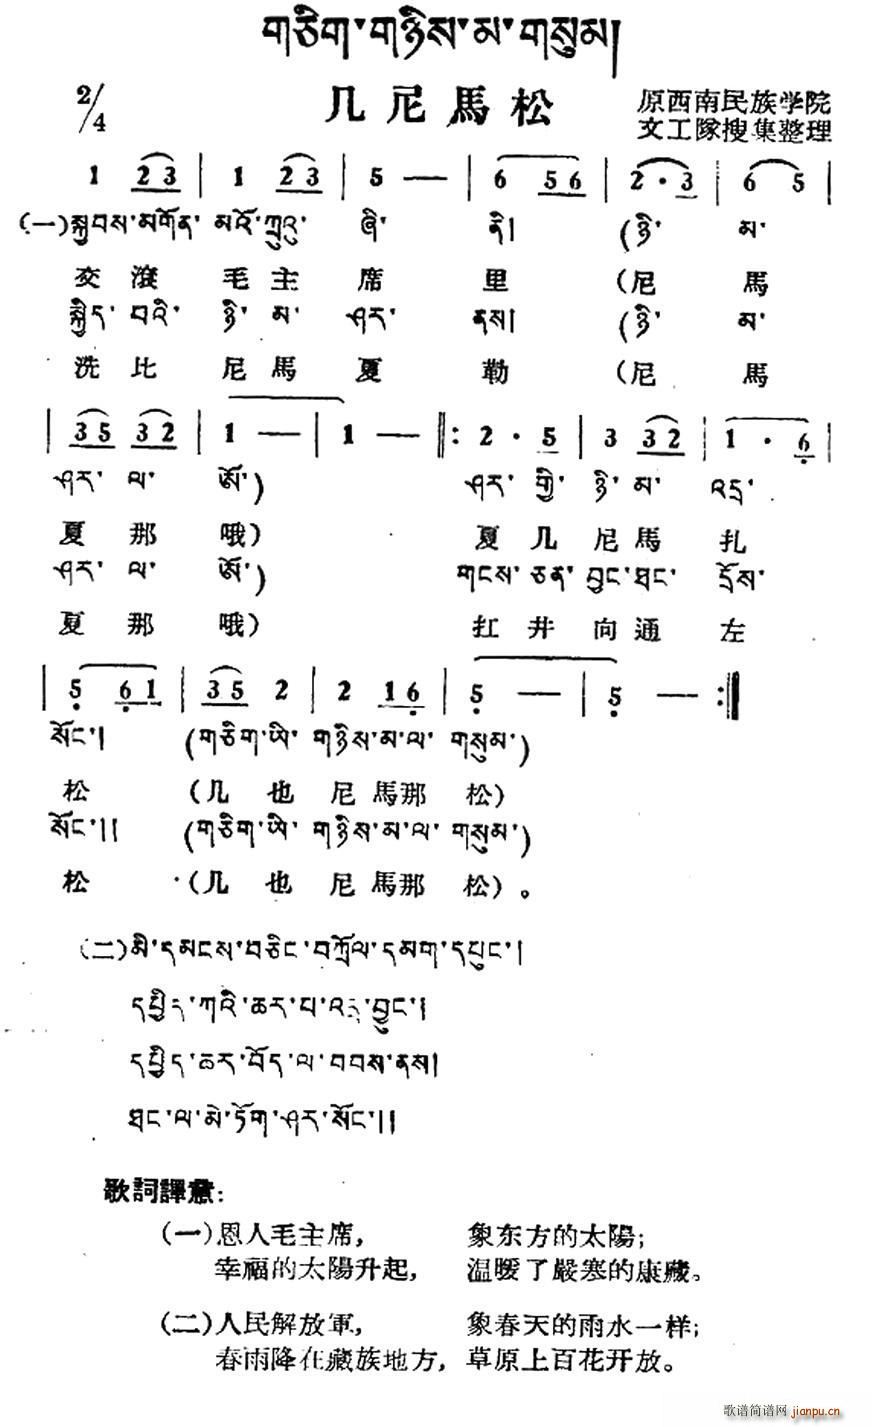 གཅིག་གཉིས་མ་གསུམ།
2/4
几尼馬松
原西南民族学院
文工隊搜集整理
1 23 | 1 23 | 5 — | 6 56 | 2 · 3 | 6 5 |
(一)སྐྱབས་མགོན་ མའོ་ཀྲུའུ་ ཞི་ ནི། (ཉི་ མ་
交滾 毛主 席 里 (尼 馬
སྐྱིད་ བའི་ ཉི་ མ་ ཤར་ ནས། (ཉི་ མ་
洗比 尼馬 夏 勒 (尼 馬
| 35 32 | 1 — | 1 — ‖: 2 · 5 | 3 32 | 1 · 6 |
ཤར་ ལ་ ཨོ་) ཤར་ གྱི་ ཉི་ མ་ འདྲ་
夏那 哦) 夏几 尼馬 扎
ཤར་ ལ་ ཨོ་) གངས་ ཅན་ བྱང་ཐང་ དྲོས་
夏那 哦) 扛井 向通 左
| 5 61 | 35 2 | 2 16 | 5 — | 5 — :‖
སོང་། (གཅིག་ཡི་ གཉིས་མ་ལ་ གསུམ་)
松 (几也 尼馬那 松)
སོང་།། (གཅིག་ཡི་ གཉིས་མ་ལ་ གསུམ་)
松 (几也 尼馬那 松)。
(二)མི་དམངས་བཅིང་བཀྲོལ་དམག་དཔུང་།
དཔྱིད་ཀའི་ཆར་པ་འདྲ་བྱུང་།
དཔྱིད་ཆར་བོད་ལ་བབས་ནས།
ཐང་ལ་མེ་ཏོག་ཤར་སོང་།།
歌詞譯意:
(一)恩人毛主席, 象东方的太陽;
幸福的太陽升起, 温暖了嚴寒的康藏。
(二)人民解放軍, 象春天的雨水一样;
春雨降在藏族地方, 草原上百花开放。
歌谱简谱网 jianpu.cn